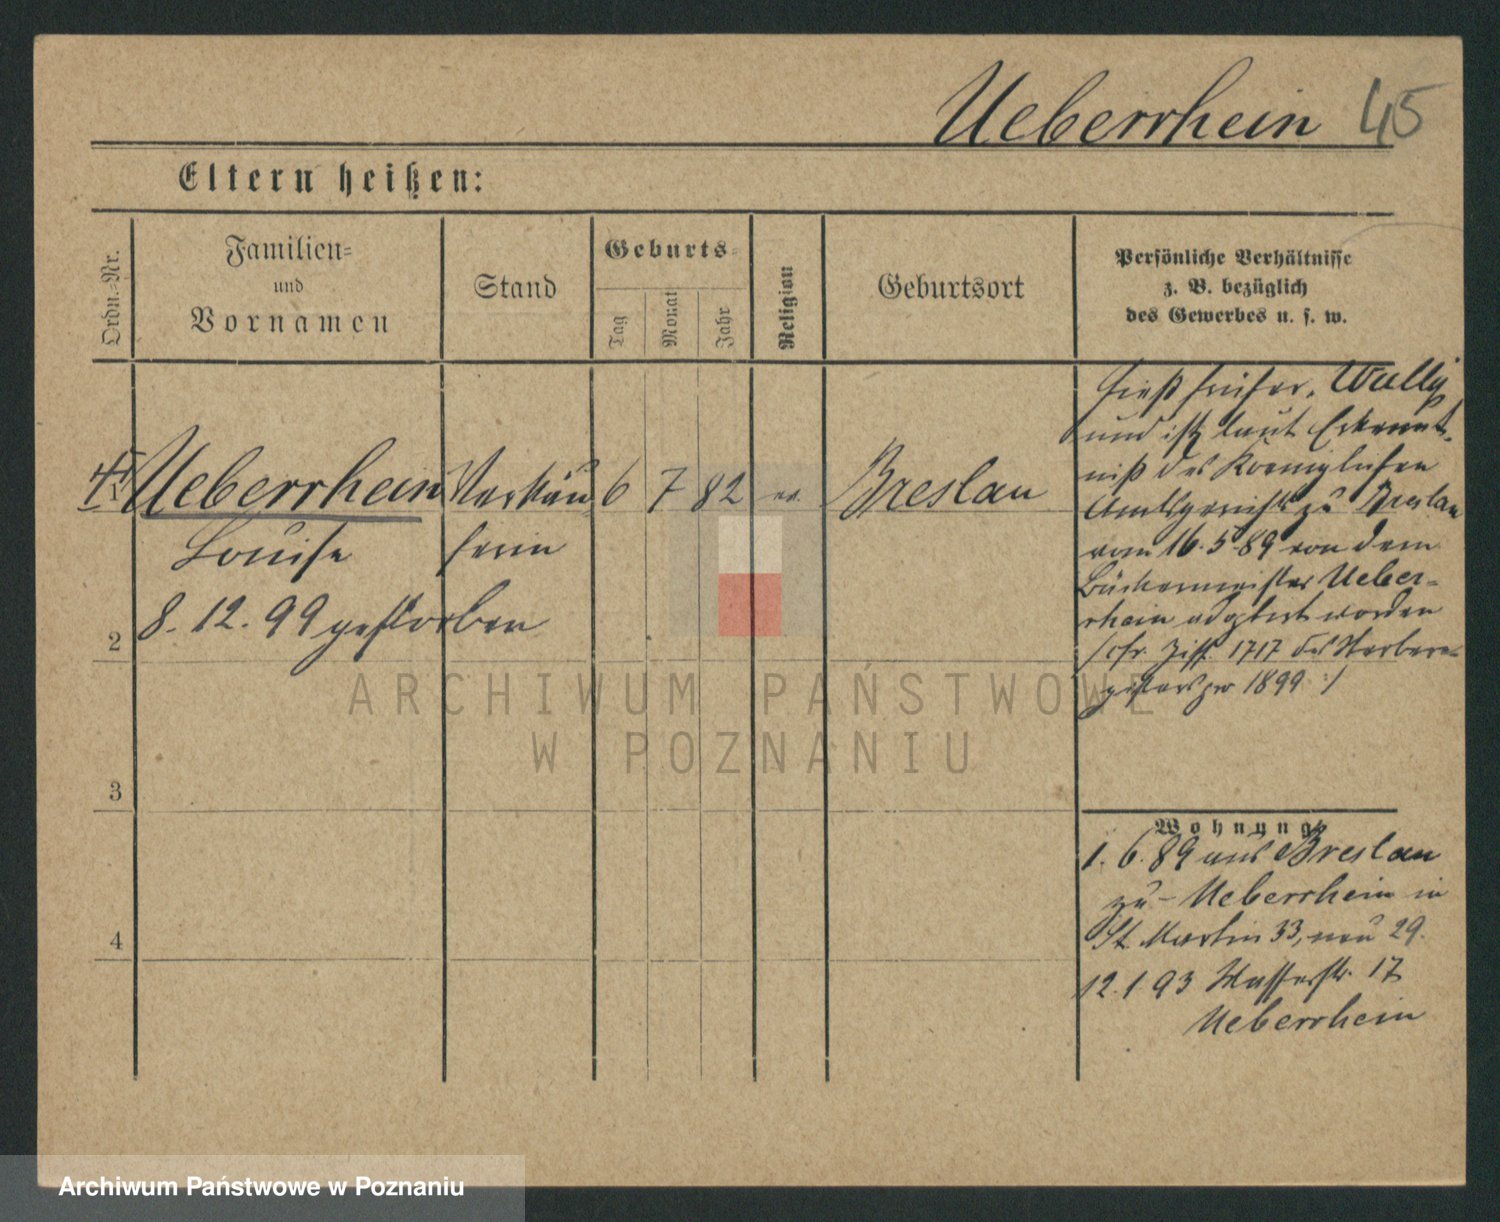 Ueberrhein 45
Eltern heißen:
Ordn.-Nr.
Familien-
und
Vornamen
Stand
Geburts-
Tag
Monat
Jahr
Religion
Geburtsort
Persönliche Verhältnisse
z. B. bezüglich
des Gewerbes u. s. w.
Ueberrhein Verkäu 6 7 82 ev. Breslau
Louise ferin
8. 12. 99 gestorben
2
3
4
hieß früher, Wally
und ist laut Erkennt-
niß des Koeniglichen
Amtsgerichts zu Breslau
vom 16. 5. 89 von dem
Bäckermeister Ueber-
rhein adoptirt worden
/cfr. Ziff. 1717 des Sterbere-
gisters pro 1899 :/
Wohnung:
1. 6. 89 aus Breslau
zu - Ueberrhein in
St. Martin 33, neu 29.
12. 1. 93 Wasserstr. 17
Ueberrhein
ARCHIWUM PAŃSTWOWE
W POZNANIU
Archiwum Państwowe w Poznaniu